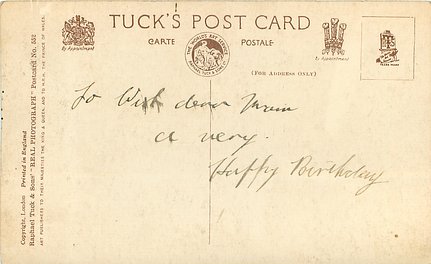 TUCK'S POST CARD
CARTE POSTALE
By Appointment
By Appointment
(FOR ADDRESS ONLY)
THE WORLD'S ART SERVICE
RAPHAEL TUCK & SONS LTD
TRADE MARK
To Wish dear Mum
a very.
Happy Birthday
Copyright, London Printed in England
Raphael Tuck & Sons' "REAL PHOTOGRAPH" Postcard No. 552
ART PUBLISHERS TO THEIR MAJESTIES THE KING & QUEEN, AND TO H.R.H. THE PRINCE OF WALES.